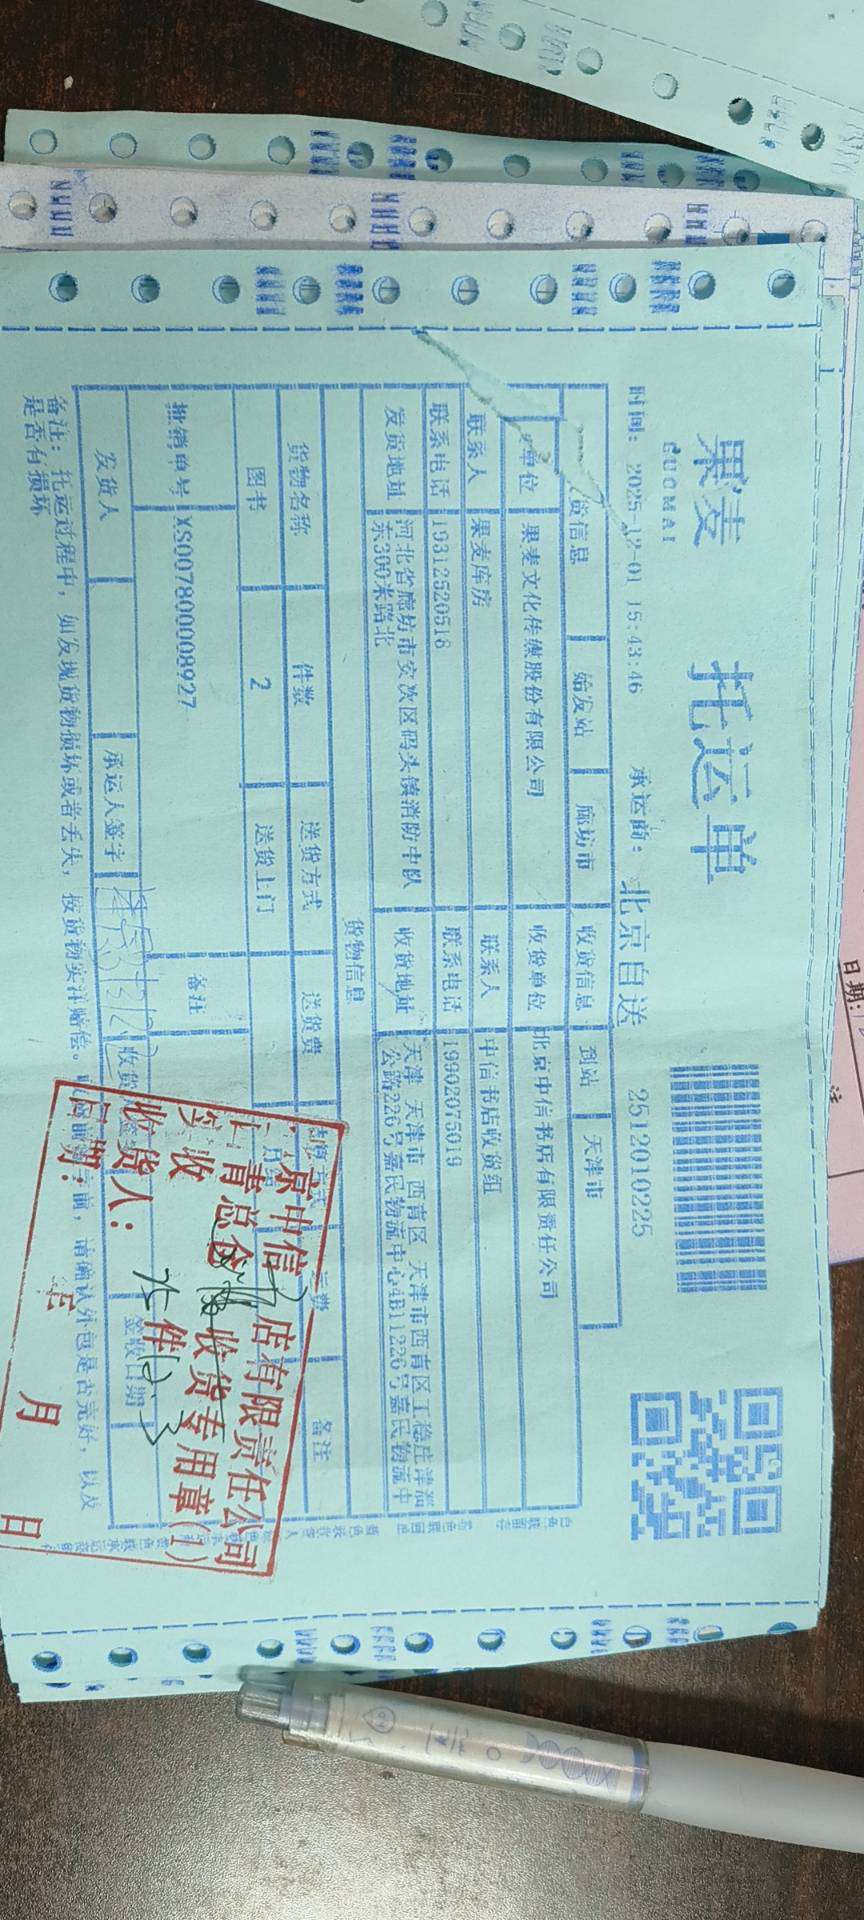 果麦
GUOMAI
托运单
时间: 2025-12-01 15:43:46
承运商: 北京自送
2512010225
货信息
始发站
廊坊市
收货信息
到站
天津市
单位
果麦文化传媒股份有限公司
收货单位
北京中信书店有限责任公司
联系人
果麦库房
联系人
中信书店收货组
联系电话
19312520518
联系电话
19902075019
发货地址
河北省廊坊市安次区码头镇消防中队
东300米路北
收货地址
天津 天津市 西青区 天津市西青区
公路226号嘉民物流中心4B1226号嘉民物流中
货物信息
货物名称
件数
送货方式
送货费
备注
图书
2
送货上门
批销单号
XS007800008927
备注
发货人
承运人签字
签收日期
备注: 托运过程中, 如发现货物损坏或者丢失, 按货物实洋赔偿。
前, 请确认外包是否完好, 以及
是否有损坏
京中信
店有限责任公司
青总仓
收货专用章(1)
签收
件
收货人:
日期:
年
月
日
日期: